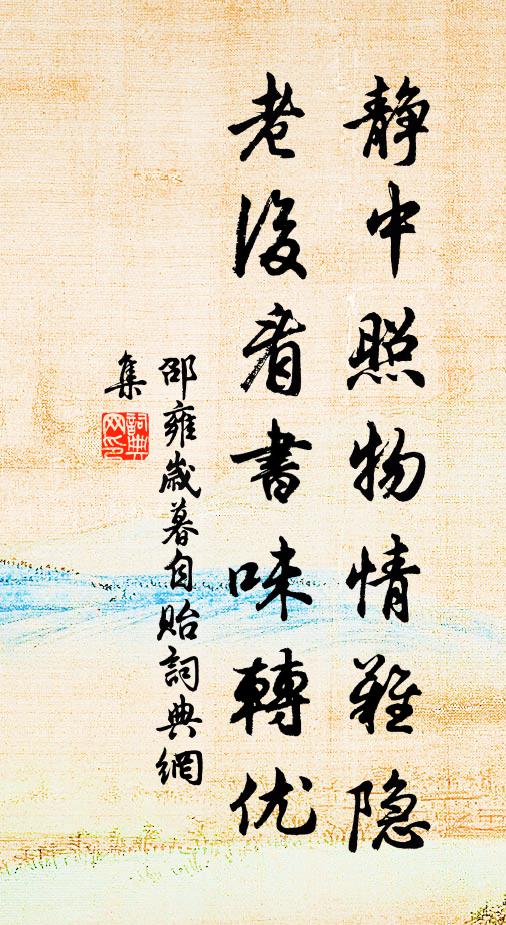 静中照物情難隐
老後看書味轉优
邵雍歲暮自貽詞典網
集
詞典网印